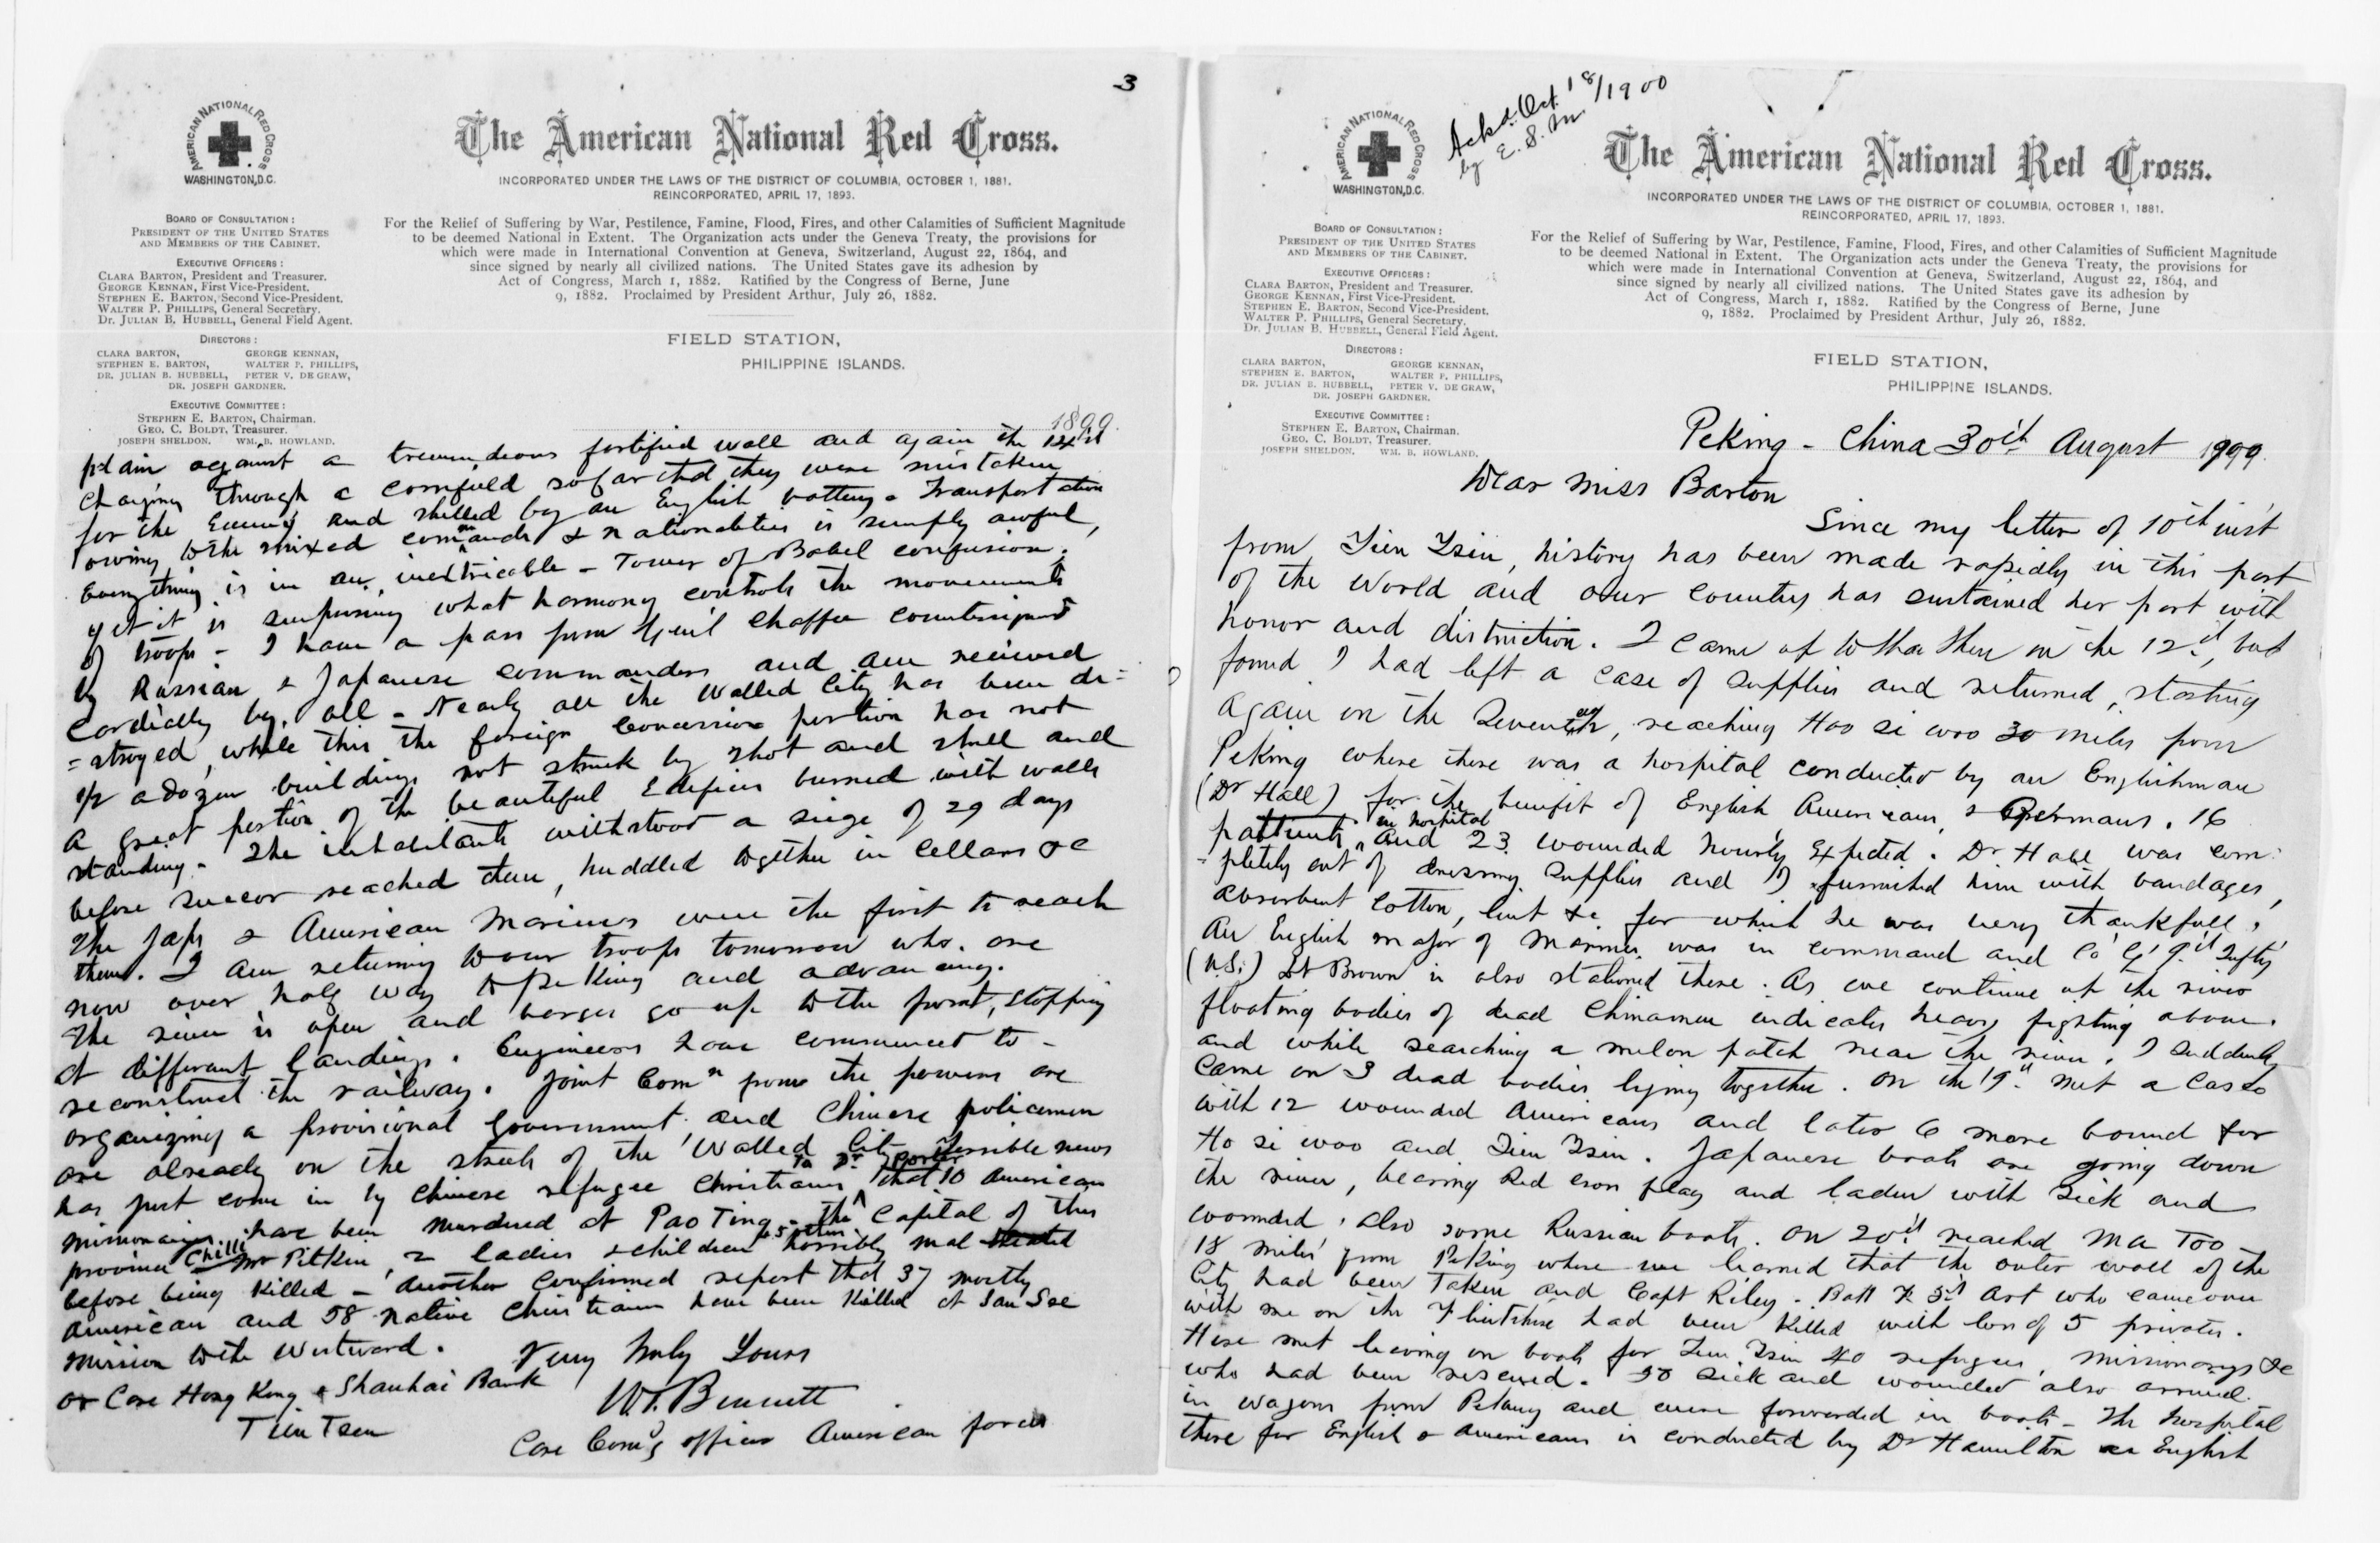 3
AMERICAN NATIONAL RED CROSS
WASHINGTON, D.C.
The American National Red Cross.
INCORPORATED UNDER THE LAWS OF THE DISTRICT OF COLUMBIA, OCTOBER 1, 1881.
REINCORPORATED, APRIL 17, 1893.
For the Relief of Suffering by War, Pestilence, Famine, Flood, Fires, and other Calamities of Sufficient Magnitude
to be deemed National in Extent. The Organization acts under the Geneva Treaty, the provisions for
which were made in International Convention at Geneva, Switzerland, August 22, 1864, and
since signed by nearly all civilized nations. The United States gave its adhesion by
Act of Congress, March 1, 1882. Ratified by the Congress of Berne, June
9, 1882. Proclaimed by President Arthur, July 26, 1882.
BOARD OF CONSULTATION:
PRESIDENT OF THE UNITED STATES
AND MEMBERS OF THE CABINET.
EXECUTIVE OFFICERS:
CLARA BARTON, President and Treasurer.
GEORGE KENNAN, First Vice-President.
STEPHEN E. BARTON, Second Vice-President.
WALTER P. PHILLIPS, General Secretary.
DR. JULIAN B. HUBBELL, General Field Agent.
DIRECTORS:
CLARA BARTON, GEORGE KENNAN,
STEPHEN E. BARTON, WALTER P. PHILLIPS,
DR. JULIAN B. HUBBELL, PETER V. DE GRAW,
DR. JOSEPH GARDNER.
EXECUTIVE COMMITTEE:
STEPHEN E. BARTON, Chairman.
GEO. C. BOLDT, Treasurer.
JOSEPH SHELDON. WM. B. HOWLAND.
FIELD STATION,
PHILIPPINE ISLANDS.
1899.
plain against a tremendious fortified wall and again the 14th
charging through a cornfield so far that they were mistaken
for the Enemy and shelled by an English battery. Transportation
owing to the mixed commands & nationalities is simply awful,
Everything is in an inextricable - Tower of Babel confusion.
yet it is surprising what harmony controls the movements
of troops - I have a pass from Gen'l Chaffee countersigned
by Russian & Japanese commanders and am received
cordially by all - Nearly all the Walled City has been de=
=stroyed, while this the foreign Concession portion has not
1/2 a dozen buildings not struck by shot and shell and
a great portion of the beautiful Edifices burned with walls
standing. The inhabitants withstood a siege of 29 days
before succor reached them, huddled together in cellars &c
The Japs & American Marines were the first to reach
them. I am returning to our troops tomorrow who are
now over half way to Peking and advancing.
The river is open and barges go up to the front, stopping
at different landings. Engineers have commenced to -
reconstruct the railway. Joint Comn from the powers are
organizing a provisional government and Chinese policemen
are already on the streets of the Walled City. Terrible news
has just come in by Chinese refugee Christians to Dr Porter that 10 American
missionaries have been murdered at Pao Ting - the Capital of this
province Chilli Mr Pitkin, 2 ladies & children horribly mal treated
before being killed - Another confirmed report that 37 mostly
American and 58 native Christians have been killed at San See
mission to the Westward.
Very truly Yours
W. Bennett
or Care Hong Kong & Shanhai Bank
Tien Tsen
Care Com'g officer American forces
Ackd. Oct. 18/1900
by E. S. M.
AMERICAN NATIONAL RED CROSS
WASHINGTON, D.C.
The American National Red Cross.
INCORPORATED UNDER THE LAWS OF THE DISTRICT OF COLUMBIA, OCTOBER 1, 1881.
REINCORPORATED, APRIL 17, 1893.
For the Relief of Suffering by War, Pestilence, Famine, Flood, Fires, and other Calamities of Sufficient Magnitude
to be deemed National in Extent. The Organization acts under the Geneva Treaty, the provisions for
which were made in International Convention at Geneva, Switzerland, August 22, 1864, and
since signed by nearly all civilized nations. The United States gave its adhesion by
Act of Congress, March 1, 1882. Ratified by the Congress of Berne, June
9, 1882. Proclaimed by President Arthur, July 26, 1882.
BOARD OF CONSULTATION:
PRESIDENT OF THE UNITED STATES
AND MEMBERS OF THE CABINET.
EXECUTIVE OFFICERS:
CLARA BARTON, President and Treasurer.
GEORGE KENNAN, First Vice-President.
STEPHEN E. BARTON, Second Vice-President.
WALTER P. PHILLIPS, General Secretary.
DR. JULIAN B. HUBBELL, General Field Agent.
DIRECTORS:
CLARA BARTON, GEORGE KENNAN,
STEPHEN E. BARTON, WALTER P. PHILLIPS,
DR. JULIAN B. HUBBELL, PETER V. DE GRAW,
DR. JOSEPH GARDNER.
EXECUTIVE COMMITTEE:
STEPHEN E. BARTON, Chairman.
GEO. C. BOLDT, Treasurer.
JOSEPH SHELDON. WM. B. HOWLAND.
FIELD STATION,
PHILIPPINE ISLANDS.
Peking - China 30th August 1999
Dear Miss Barton
Since my letter of 10th inst
from Tien Tsin, history has been made rapidly in this part
of the World and our Country has sustained her part with
honor and distinction. I came up to then on the 12th, but
found I had left a case of supplies and returned, starting
again on the Seventh, reaching Hoo si woo 30 miles from
Peking where there was a hospital conducted by an Englishman
(Dr Hall) for the benefit of English Americans & Germans. 16
patients in hospital and 23 wounded hourly Expected. Dr Hall was com-
-pletely out of dressing supplies and I furnished him with bandages,
absorbent cotton, lint &c for which he was very thankfull,
An English major of Marines was in command and Co G 9th Infty
(U.S.) Lt Brown is also stationed there. As we continue up the river
floating bodies of dead Chinamen indicates heavy fighting above.
and while searching a melon patch near the river, I suddenly
came on 3 dead bodies lying together. On the 19th met a casco
with 12 wounded Americans and later 6 more bound for
Ho si woo and Tien Tsin. Japanese boats are going down
the river, bearing Red cross flag and laden with sick and
wounded, also some Russian boats. On 20th reached Ma Too
18 miles from Peking where we learned that the outer wall of the
City had been Taken and Capt Riley - Batt F 5th Art who came over
with me on the Flintshire had been killed with loss of 5 privates.
Here met leaving on boats for Tien Tsin 40 refugees, missionarys &c
who had been rescued. 50 sick and wounded also arrived
in wagons from Peking and were forwarded in boats - The hospital
there for English & Americans is conducted by Dr Hamilton an English